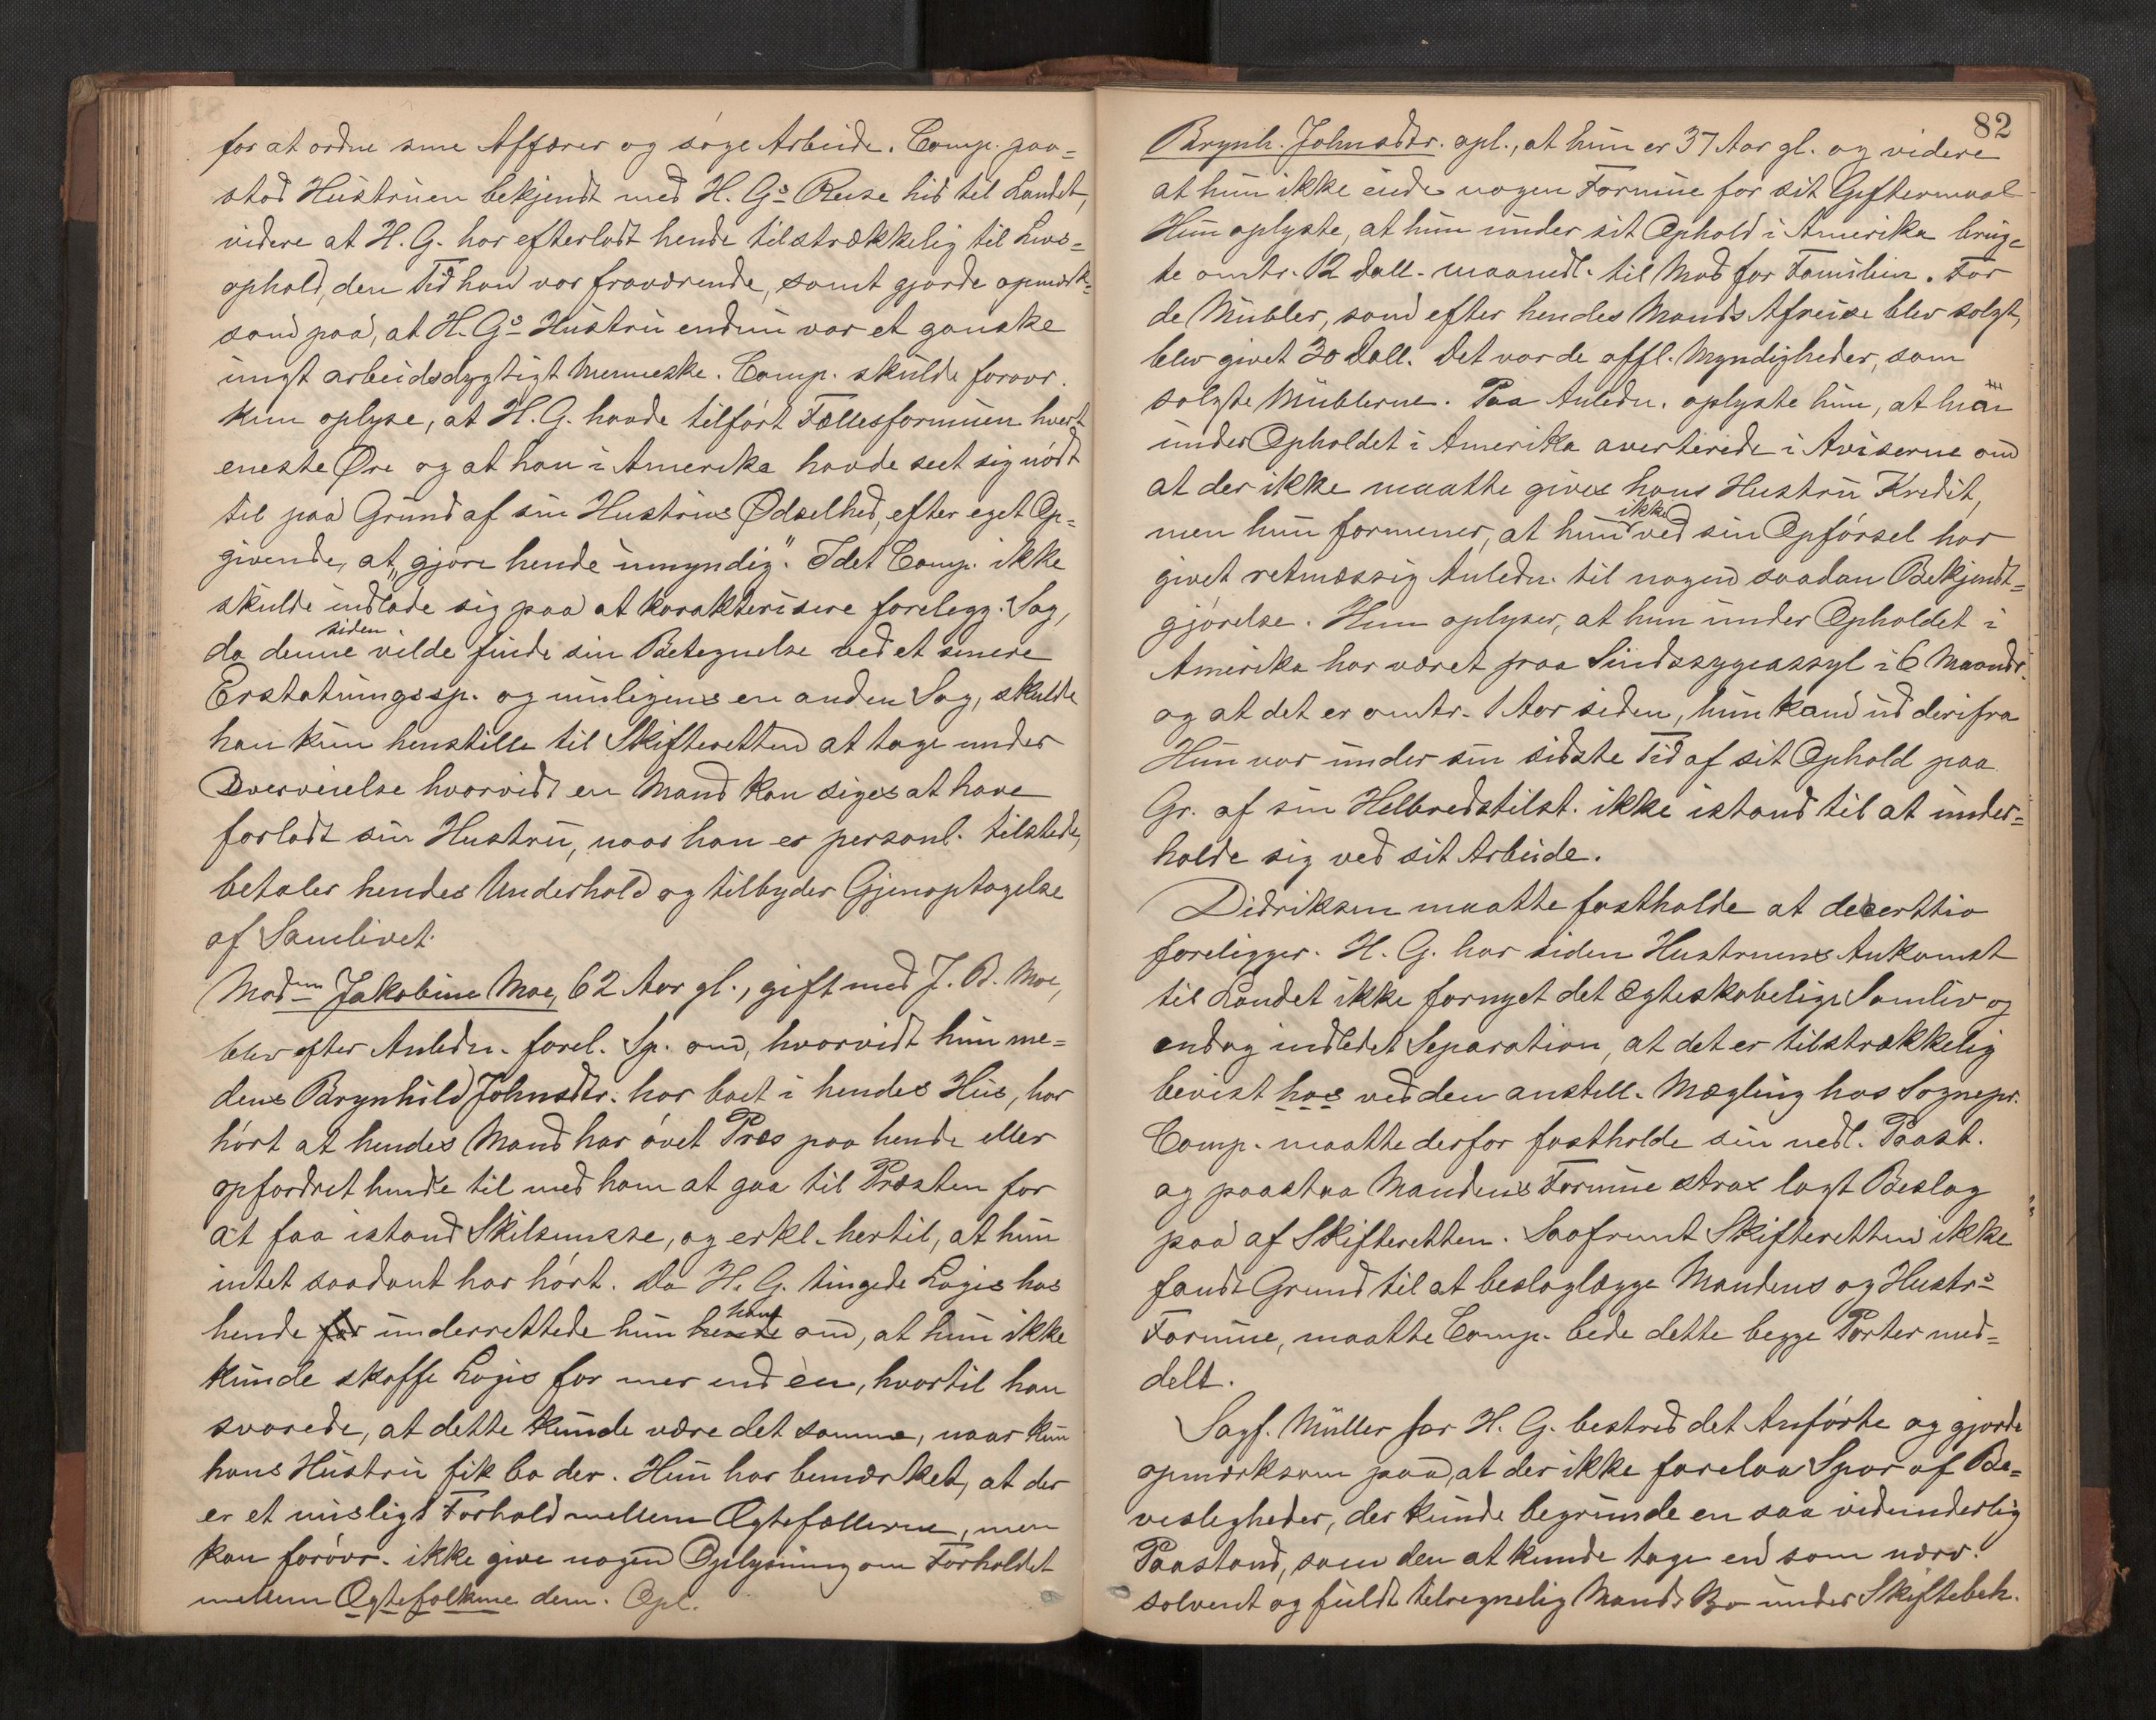 for at ordne sine Affærer og søge Arbeide. Comp. paa=
stod Hustruen bekjendt med H. Gs Reise hid til Landet,
videre at H. G. har efterladt hende tilstrækkelig til Livs=
ophold, den Tid han var fraværende, samt gjorde opmærk=
som paa, at H. Gs Hustru endnu var et ganske
ungt arbeidsdygtigt Menneske. Comp. skulde forøvr.
kun oplyse, at H. G. havde tilført Fællesformuen hvert
eneste Øre og at han i Amerika havde seet sig nødt
til paa Grund af sin Hustrus Ødselhed, efter eget Op=
givende, at „gjøre hende umyndig". Idet Comp. ikke
skulde indlade sig paa at karakterisere forelegg. Sag,
da denne siden vilde finde sin Betegnelse ved et senere
Erstatningssp. og muligens en anden Sag, skulde
han kun henstille til Skifteretten at tage under
Overveielse hvorvidt en Mand kan siges at have
forladt sin Hustru, naar han er personl. tilstede,
betaler hendes Underhold og tilbyder Gjenoptagelse
af Samlivet.
Madm Jakobine Moe, 62 Aar gl., gift med J. B. Moe,
blev efter Anledn. forel. Sp. om, hvorvidt hun me=
dens Brynhild Johnsdtr. har boet i hendes Hus, har
hørt at hendes Mand har øvet Præs paa hende eller
opfordret hende til med ham at gaa til Præsten for
at faa istand Skilsmisse, og erkl. hertil, at hun
intet saadant har hørt. Da H. G. tingede Logis hos
hende for underrettede hun hende ham om, at hun ikke
kunde skaffe Logis for mer end èn, hvortil han
svarede, at dette kunde være det samme, naar kun
hans Hustru fik bo der. Hun har bemærket, at der
er et misligt Forhold mellem Ægtefællerne, men
kan forøvr. ikke give nogen Oplysning om Forholdet
mellem Ægtefolkene dem. Opl.
82
Brynh. Johnsdtr. opl., at hun er 37 Aar gl. og videre
at hun ikke eiede nogen Formue for sit Giftermaal
Hun oplyste, at hun under sit Ophold i Amerika brug=
te omtr. 12 Doll. maanedl. til Mad for Familien. For
de Møbler, som efter hendes Mands Afreise blev solgt,
blev givet 30 Doll. Det var de offl. Myndigheder, som
solgte Møblerne. Paa Anledn. oplyste hun, at han
under Opholdet i Amerika averterede i Aviserne om
at der ikke maatte gives hans Hustru Kredit,
men hun formener, at hun ikke ved sin Opførsel har
givet retmæssig Anledn. til nogen saadan Bekjendt=
gjørelse. Hun oplyser, at hun under Opholdet i
Amerika har været paa Sindssygeassyl i 6 Maandr.
og at det er omtr. 1 Aar siden, hun kom ud derifra
Hun var under sin sidste Tid af sit Ophold paa
Gr. af sin Helbredstilst. ikke istand til at under=
holde sig ved sit Arbeide.
Didriksen maatte fastholde at deserttio
foreligger. H. G. har siden Hustruens Ankomst
til Landet ikke fornyet det ægteskabelige Samliv og
endog indledet Separation, at det er tilstrækkelig
bevist hos ved den anstill. Mægling hos Sognepr.
Comp. maatte derfor fastholde sin nedl. Paast.
og paastaa Mandens Formue strax lagt Beslag
paa af Skifteretten. Saafremt Skifteretten ikke
fandt Grund til at beslaglægge Mandens og Hustrs
Formue, maatte Comp. bede dette begge Parter med=
delt.
Sagf. Müller for H. G. bestred det Anførte og gjorde
opmærksom paa, at der ikke forelaa Spor af Be=
visligheder, der kunde begrunde en saa vidunderlig
Paastand, som den at kunde tage en som nærv.
solvent og fuldt tilregnelig Mands Bo under Skiftebeh.